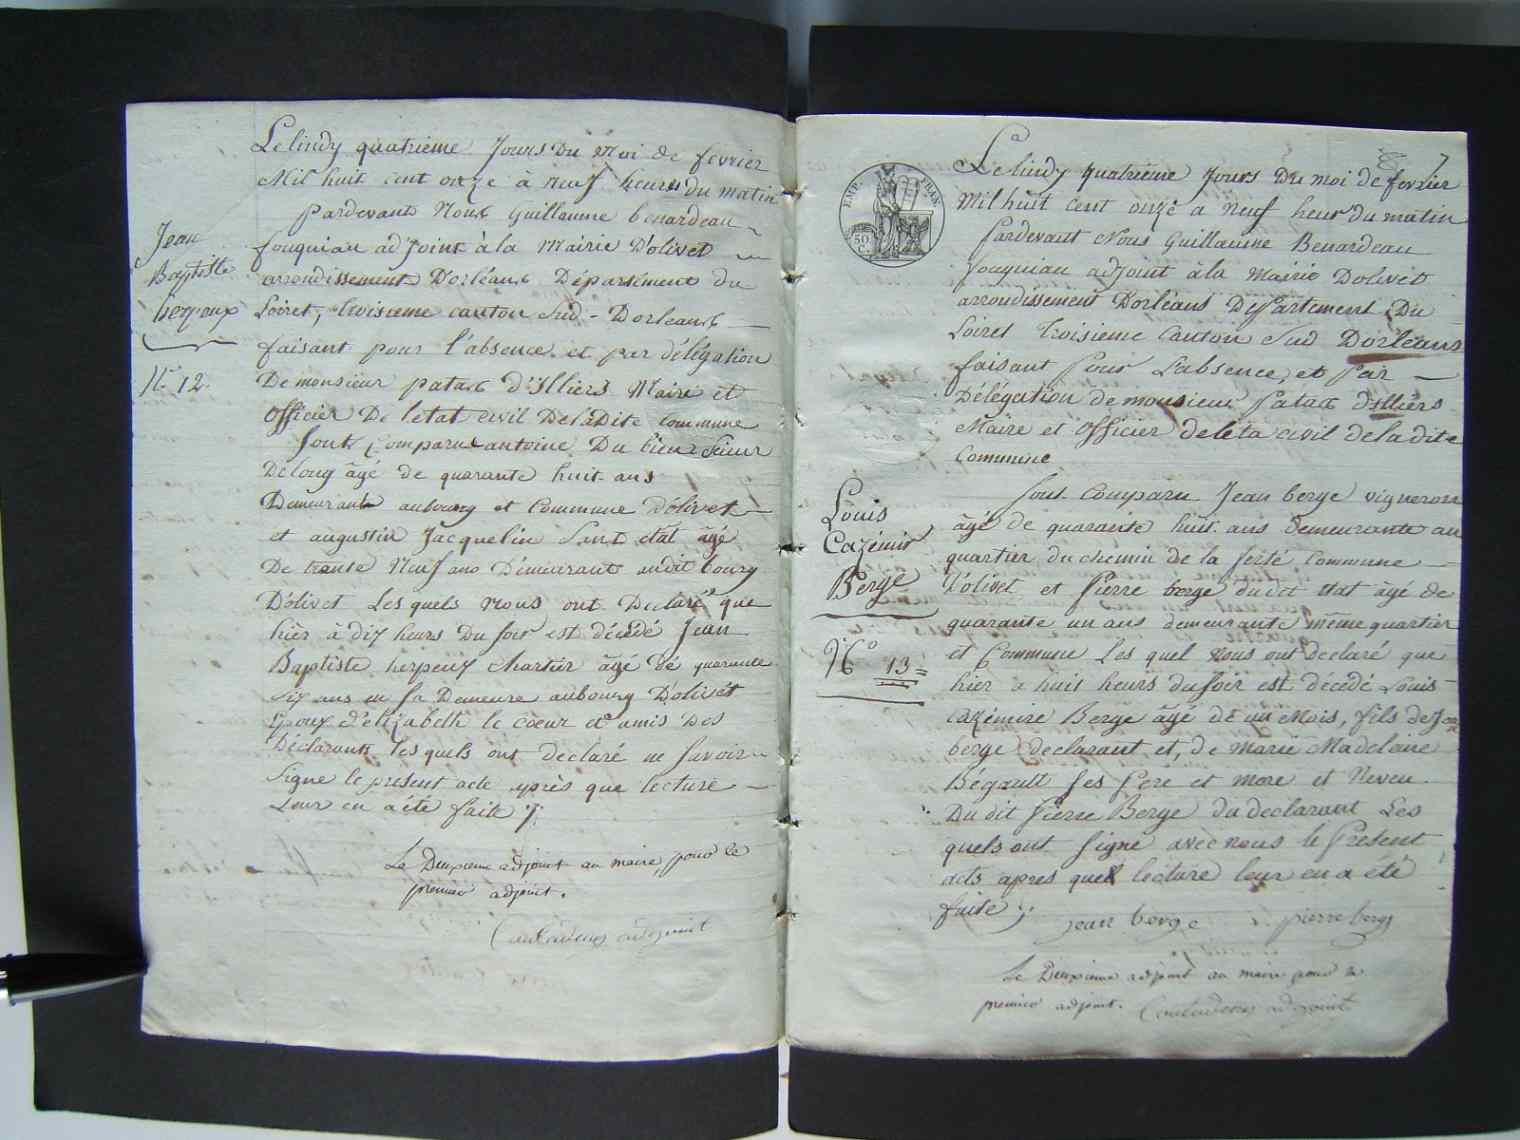 Le lindy quatrieme Jours Du Moi de fevrier
Mil huit cent onze à neuf heures du matin
pardevant Nous Guillaume benardeau
fouquiau adjoint à la Mairie D'olivet
arrondissement D'orléans Département du
Loiret, troisieme canton Sud - Dorleans
faisant pour l'absence et par délégation
De monsieur patas d'illiers Maire et
officier De letat civil De la Dite commune
Jean
Baptiste
herpeux
N.º 12.
Sont Comparue antoine Du bien Sieur
Delong âgé de quarante huit ans
Demeurant au bourg et Commune D'olivet
et augustin Jacquelin Sant état âgé
De trente Neuf ans Demeurant audit bourg
D'olivet Les quels nous ont Declaré que
hier à dix heurs Du soir est décédé Jean
Baptiste herpeux Chartier âgé de quarante
six ans en sa Demeure au bourg D'olivet
Epoux d'elizabeth le coeur et amis Des
Déclarants les quels ont déclaré ne savoir
signe le present acte après que lecture
Leur en a été faite
Le Deuxieme adjoint au maire, pour le
premier adjoint.
adjoint
7
EMP. FRAN.
50
C.
Le lindy quatrieme Jours Du moi de fevrier
Mil huit cent onze a Neuf heur du matin
Pardevant Nous Guillaume Benardeau
fouquiau adjoint à la Mairie D'olivet
arrondissement D'orléans Departement Du
Loiret troisieme Canton Sud D'orléans
faisant Pour L'absence, et Par
Délégation de monsieur Patas d'illiers
Maire et officier de léta civil de la dite
Commune
Louis
Cazémir
Berge
Nº 13
Sont Comparu Jean berge vigneron
âgé de quarante huit ans demeurante au
quartier du chemin de la ferté Commune
D'olivet et Pierre berge du dit état âgé de
quarante un ans demeurante même quartier
et Commune Les quel nous ont declaré que
hier a huit heurs du soir est décédé Louis
Cazémire Berge âgé de un Mois, fils de Jean
berge declarant et, de Marie Madelaine
Bégault ses Pere et more et Neveu
Du dit Pierre Berge du declarant Les
quels ont signe avec nous le Present
acts apres que lecture leur en a été
faite
jean berge pierre berge
Le Deuxieme adjoint au maire pour le
premier adjoint. adjoint